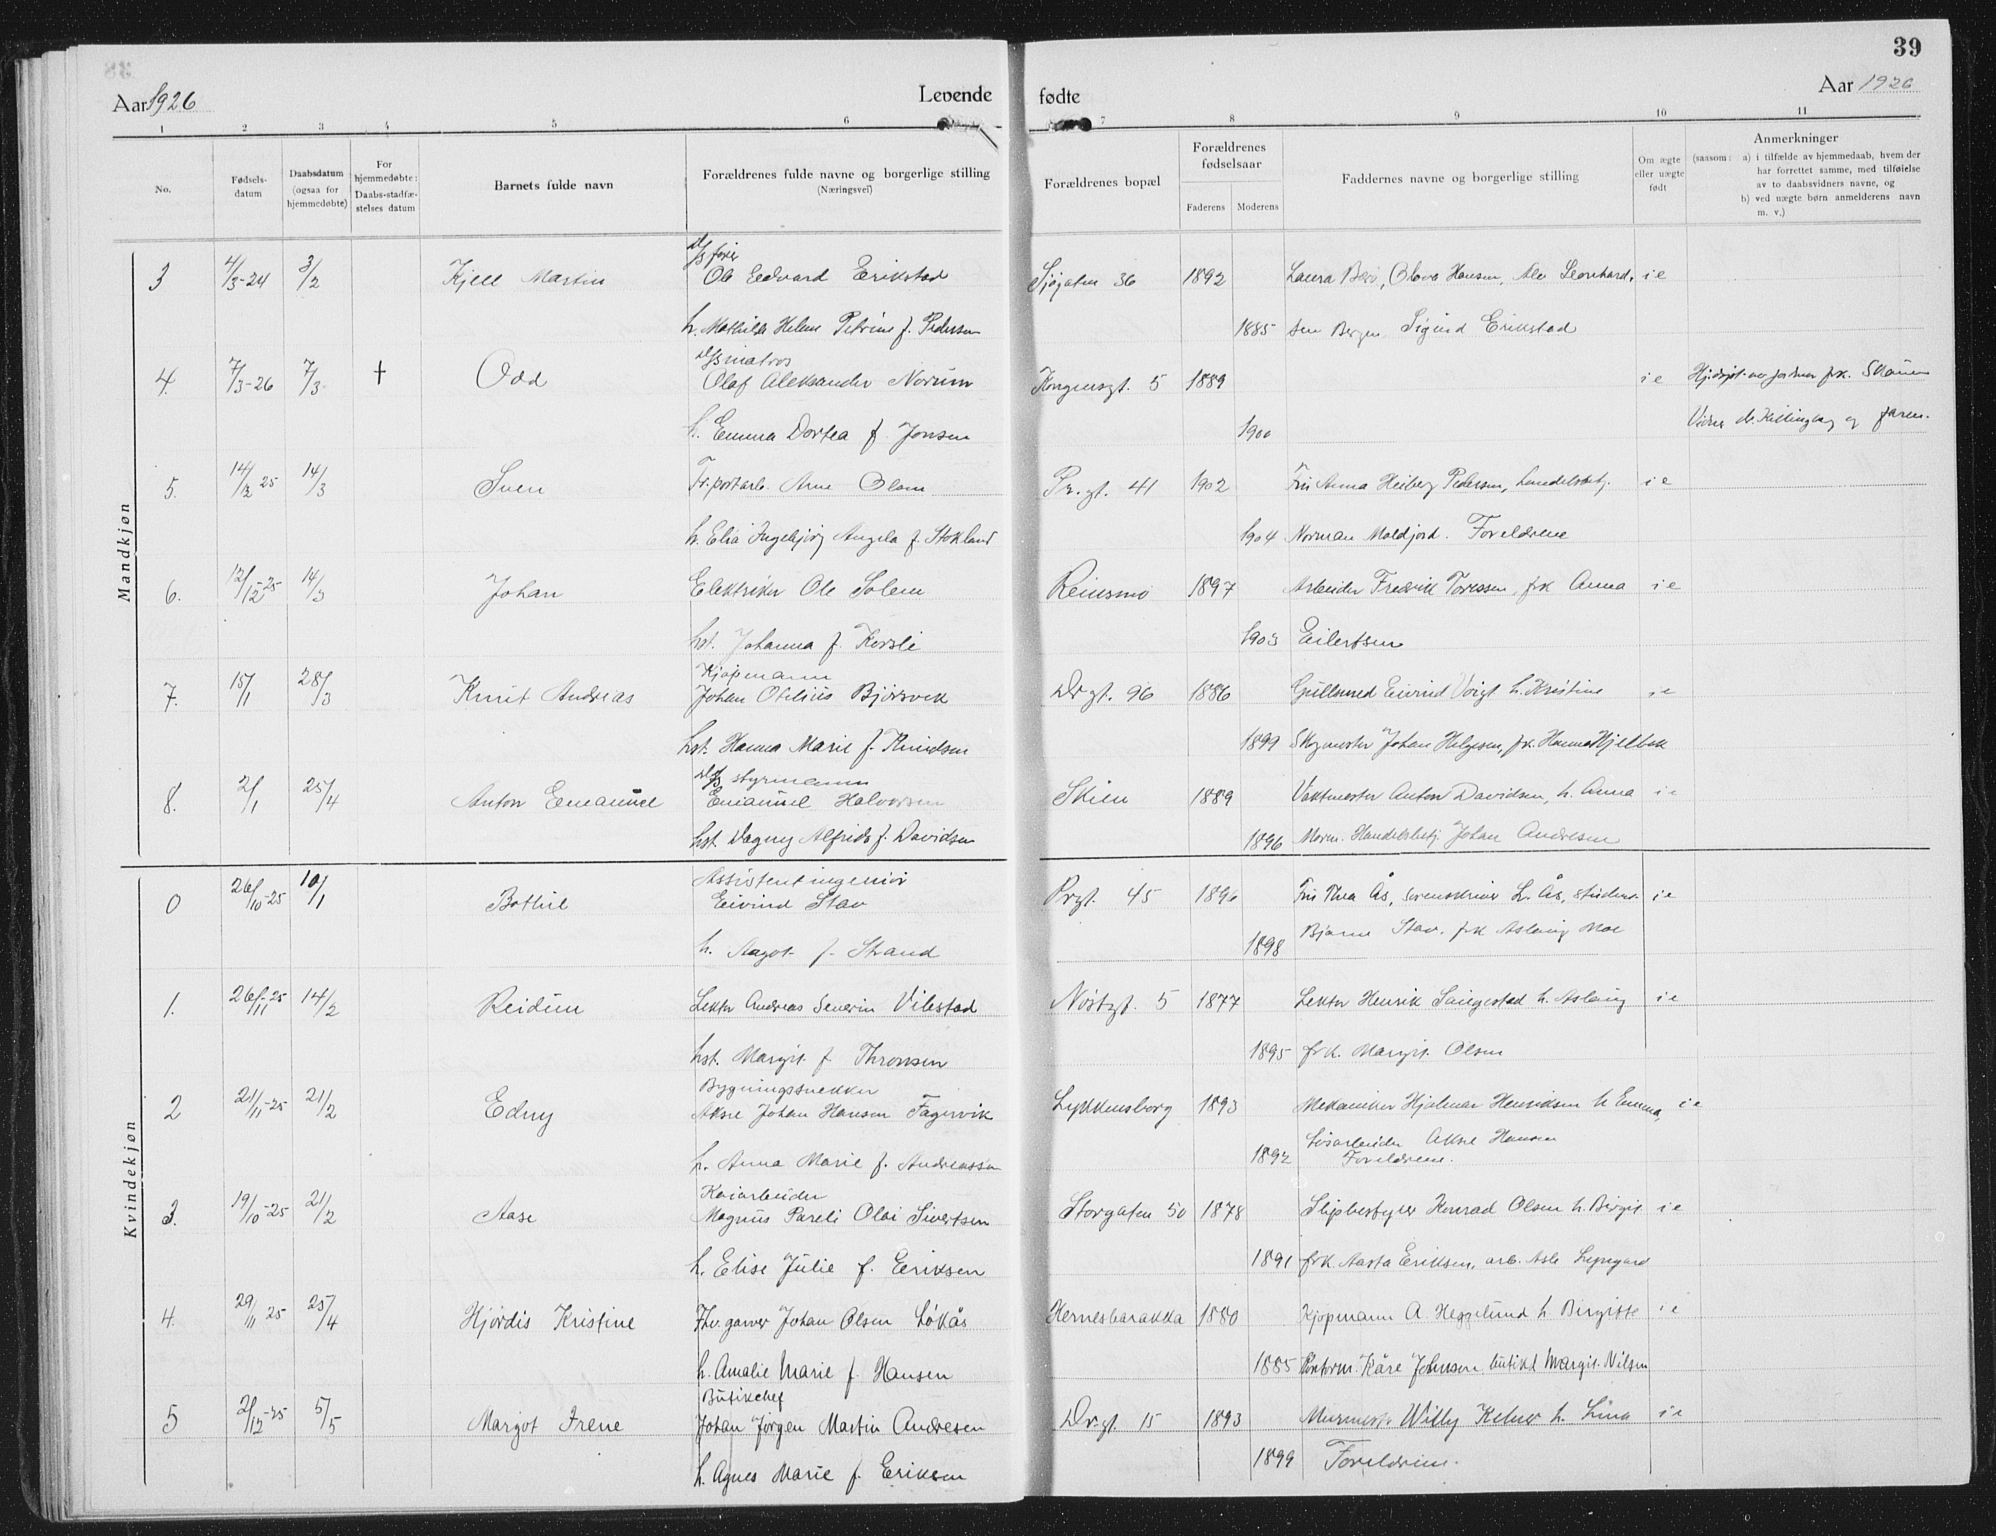 39
Aar 1926
Levende
fødte
Aar 1926
1 2 3 4 5 6 7 8 9 10 11
No.
Fødsels-
datum
Daabsdatum
(ogsaa for
hjemmedøbte)
For
hjemmedøbte:
Daabs-stadfæ-
stelses datum
Barnets fulde navn
Forældrenes fulde navne og borgerlige stilling
(Næringsvei)
Forældrenes bopæl
Forældrenes
fødselsaar
Faderens
Moderens
Faddernes navne og borgerlige stilling
Om ægte
eller uægte
født
Anmerkninger
(saasom: a) i tilfælde av hjemmedaab, hvem der
har forrettet samme, med tilføielse
av to daabsvidners navne, og
b) ved uægte børn anmelderens navn
m. v.)
Mandkjøn
3 4/3-24 3/2 Kjell Martin
Ole Edvard Erikstad
Sjøgaten 36 1892 Laura Olava Hansen, Leonhard- i e
h. Mathilde Helene Petrine f. Pedersen
1885 sen Bergen Sigurd Erikstad
d/s matros
4. 7/3-26 7/3 † Odd
Olaf Aleksander Norum
Kongensgt. 5 1889 i e frk.
h. Emma Dortea f. Jonsen
1900
5. 14/2 25 14/3 Sven
Arne Olsen
Pr.gt. 41 1902 Fru Anna Heiberg Pedersen, i e
h. Elia Ingebjørg Angela f. Stokland
1904 Norman Moldjord. Foreldrene
6. 12/12-25 14/3 Johan
Elektriker Ole Solem
Reinsmo 1897 Arbeider Fredrik Toressen, frk Anna i e
hst. Johanna f. Korsli
1903 Eilertsen
Kjøpmann
7. 15/1 28/3 Knut Andreas
Johan Otelius Bjørsvik
Dr gt. 96 1886 Gullsmed Eivind Voigt h. Kristine i e
hst. Hanna Marie f. Knudsen
1899 Johan Helgesen, frk. Hanna Hjelbak
d/s styrmann
8. 2/1 25/4 Anton Emanuel
Emanuel Halvorsen
Skien 1889 Vaktmester Anton Davidsen, h. Anna i e
hst Dagny Alfrida f. Davidsen
1896 Handelsbetj. Johan Andresen
Kvindekjøn
Assistentingeniør
0 26/10-25 10/1 Bothil
Eivind Stav
Prgt. 45 1896 Fru Thea Ås, sorenskriver L. Ås, student i e
h. Aagot f. Strand
1898 Bjarne Stav. frk Aslaug Moe
1. 26/11-25 14/2 Reidun
Lektor Andreas Severin Vilestad
Nøstgt. 5 1877 Lektor Henrik Saugestad h. Aslaug i e
hst. Margit f Thronsen
1895 frk. Margit Olsen
Bygningssnekker
2 21/11-25 21/2 Edny
Aksel Johan Hansen Fagervik
Lykkensborg 1893 Mekaniker Hjalmar Henriksen h Emma, i e
h. Anna Marie f. Andreassen
1892 Løsarbeider Aksel Hansen
Foreldrene.
Kaiarbeider
3. 19/10-25 21/2 Aase
Magnus Pareli Olai Sivertsen
Storgaten 50 1878 Slipbestyrer Konrad Olsen h. Birgit i e
h. Elise Julie f. Eriksen
1891 frk. Aasta Eriksen, arb. Asle Lyngaard
4. 29/11 25 25/4 Hjørdis Kristine
Fhv. garver Johan Olsen Løkås
Hernesbarakka 1880 Kjøpmann A Heggelund h Birgitte i e
h. Amalie Marie f. Hansen
1885 Kontorm. Kåre Johnsen butikd Margit Nilsen
Butikchef
5 2/12-25 5/5 Margot Irene
Johan Jørgen Martin Andresen
Dr.gt 15 1893 Murmester Willy Kelner h. Lina i e
h. Agnes Marie f. Eriksen
1899 Foreldrene.